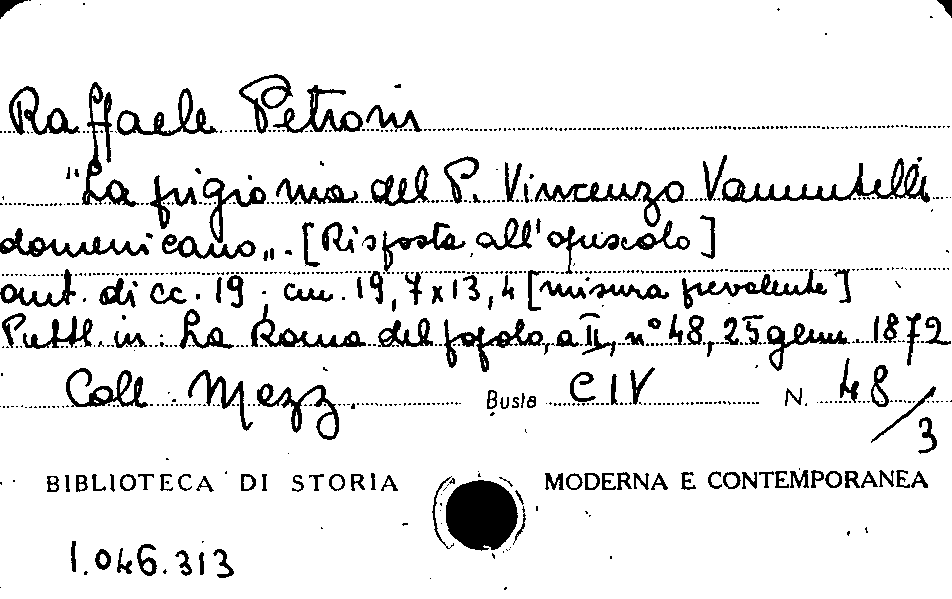 Raffaele Petroni
"La prigionia del P. Vincenzo Vannutelli
domenicano„. [Risposta all'opuscolo]
aut. di cc. 19; cm. 19,7x13,4 [misura prevalente]
Pubbl. in: La Roma del popolo, a II, n° 48, 25 genn. 1872
Coll. Mezz. Busta CIV N. 48/3
BIBLIOTECA DI STORIA MODERNA E CONTEMPORANEA
1.046.313